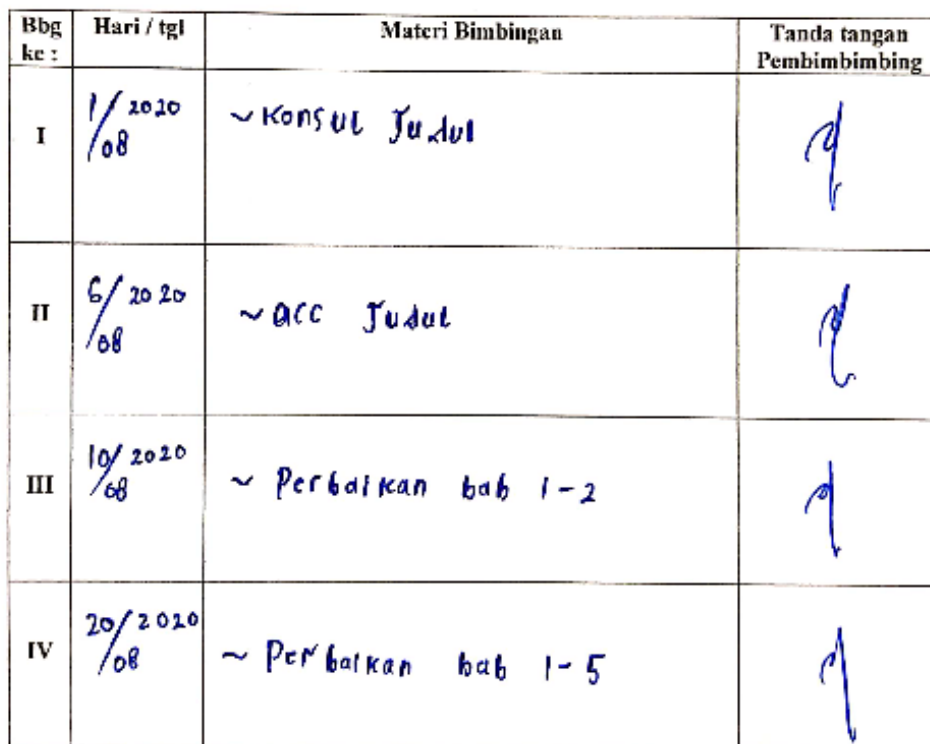 Bbg ke :
Hari / tgl
Materi Bimbingan
Tanda tangan Pembimbimbing
I
1/08 2020
~ Konsul Judul
II
6/08 2020
~ acc Judul
III
10/08 2020
~ Perbaikan bab 1-2
IV
20/08 2020
~ Perbaikan bab 1-5